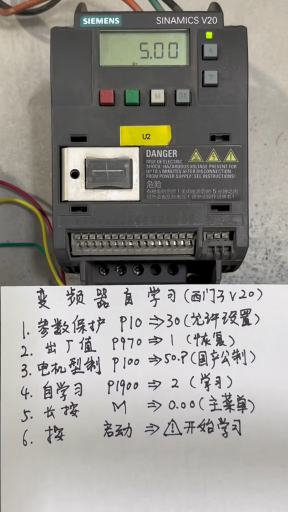 SIEMENS
SINAMICS V20
5.00
M
U2
DANGER
RISK OF ELECTRIC
危险
变频器自学习(西门子V20)
1. 参数保护 P10 ⇒ 30(允许设置)
2. 出厂值 P970 ⇒ 1 (恢复)
3. 电机型制 P100 ⇒ 50.P(国产公制)
4. 自学习 P1900 ⇒ 2 (学习)
5. 长按 M ⇒ 0.00(主菜单)
6. 按 启动 ⇒ ⚠开始学习